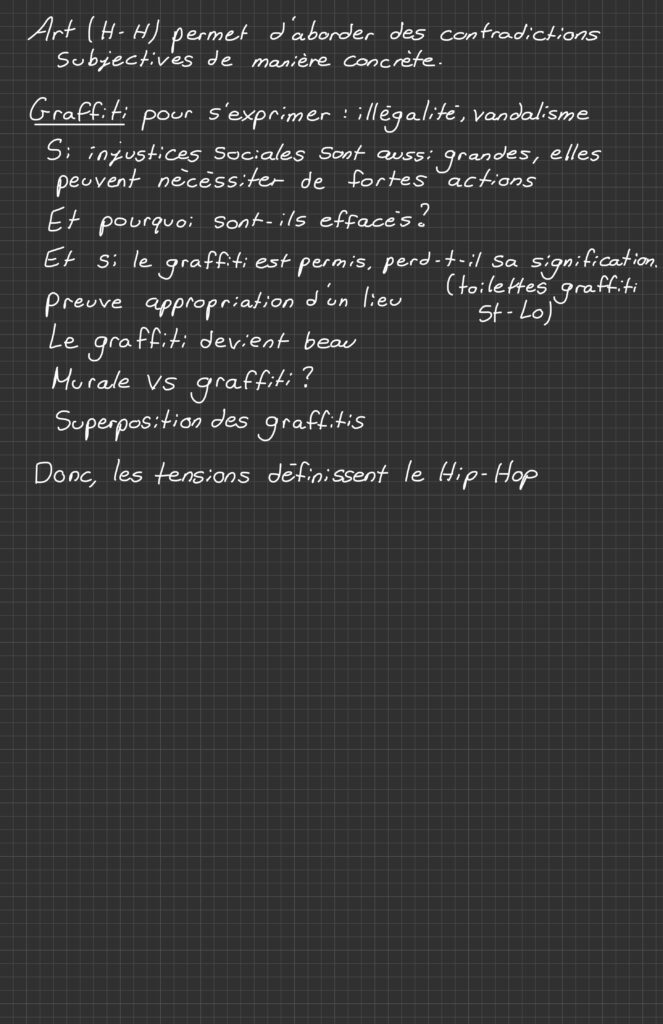 Art (H-H) permet d'aborder des contradictions
subjectives de manière concrète.
Graffiti pour s'exprimer : illégalité, vandalisme
Si injustices sociales sont aussi grandes, elles
peuvent nécéssiter de fortes actions
Et pourquoi sont-ils effacés?
Et si le graffiti est permis, perd-t-il sa signification.
Preuve appropriation d'un lieu (toilettes graffiti
St-Lo)
Le graffiti devient beau
Murale vs graffiti?
Superposition des graffitis
Donc, les tensions définissent le Hip-Hop